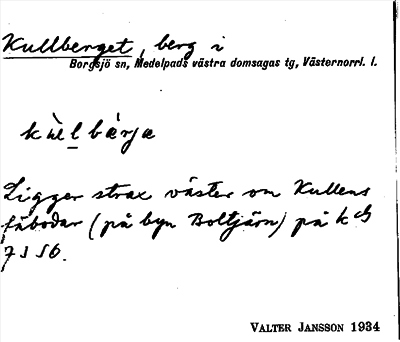 Kullberget, berg i
Borgsjö sn, Medelpads västra domsagas tg, Västernorrl. l.
Ligger strax väster om Kullens
fäbodar (på byn Boltjärn) på k
VALTER JANSSON 1934